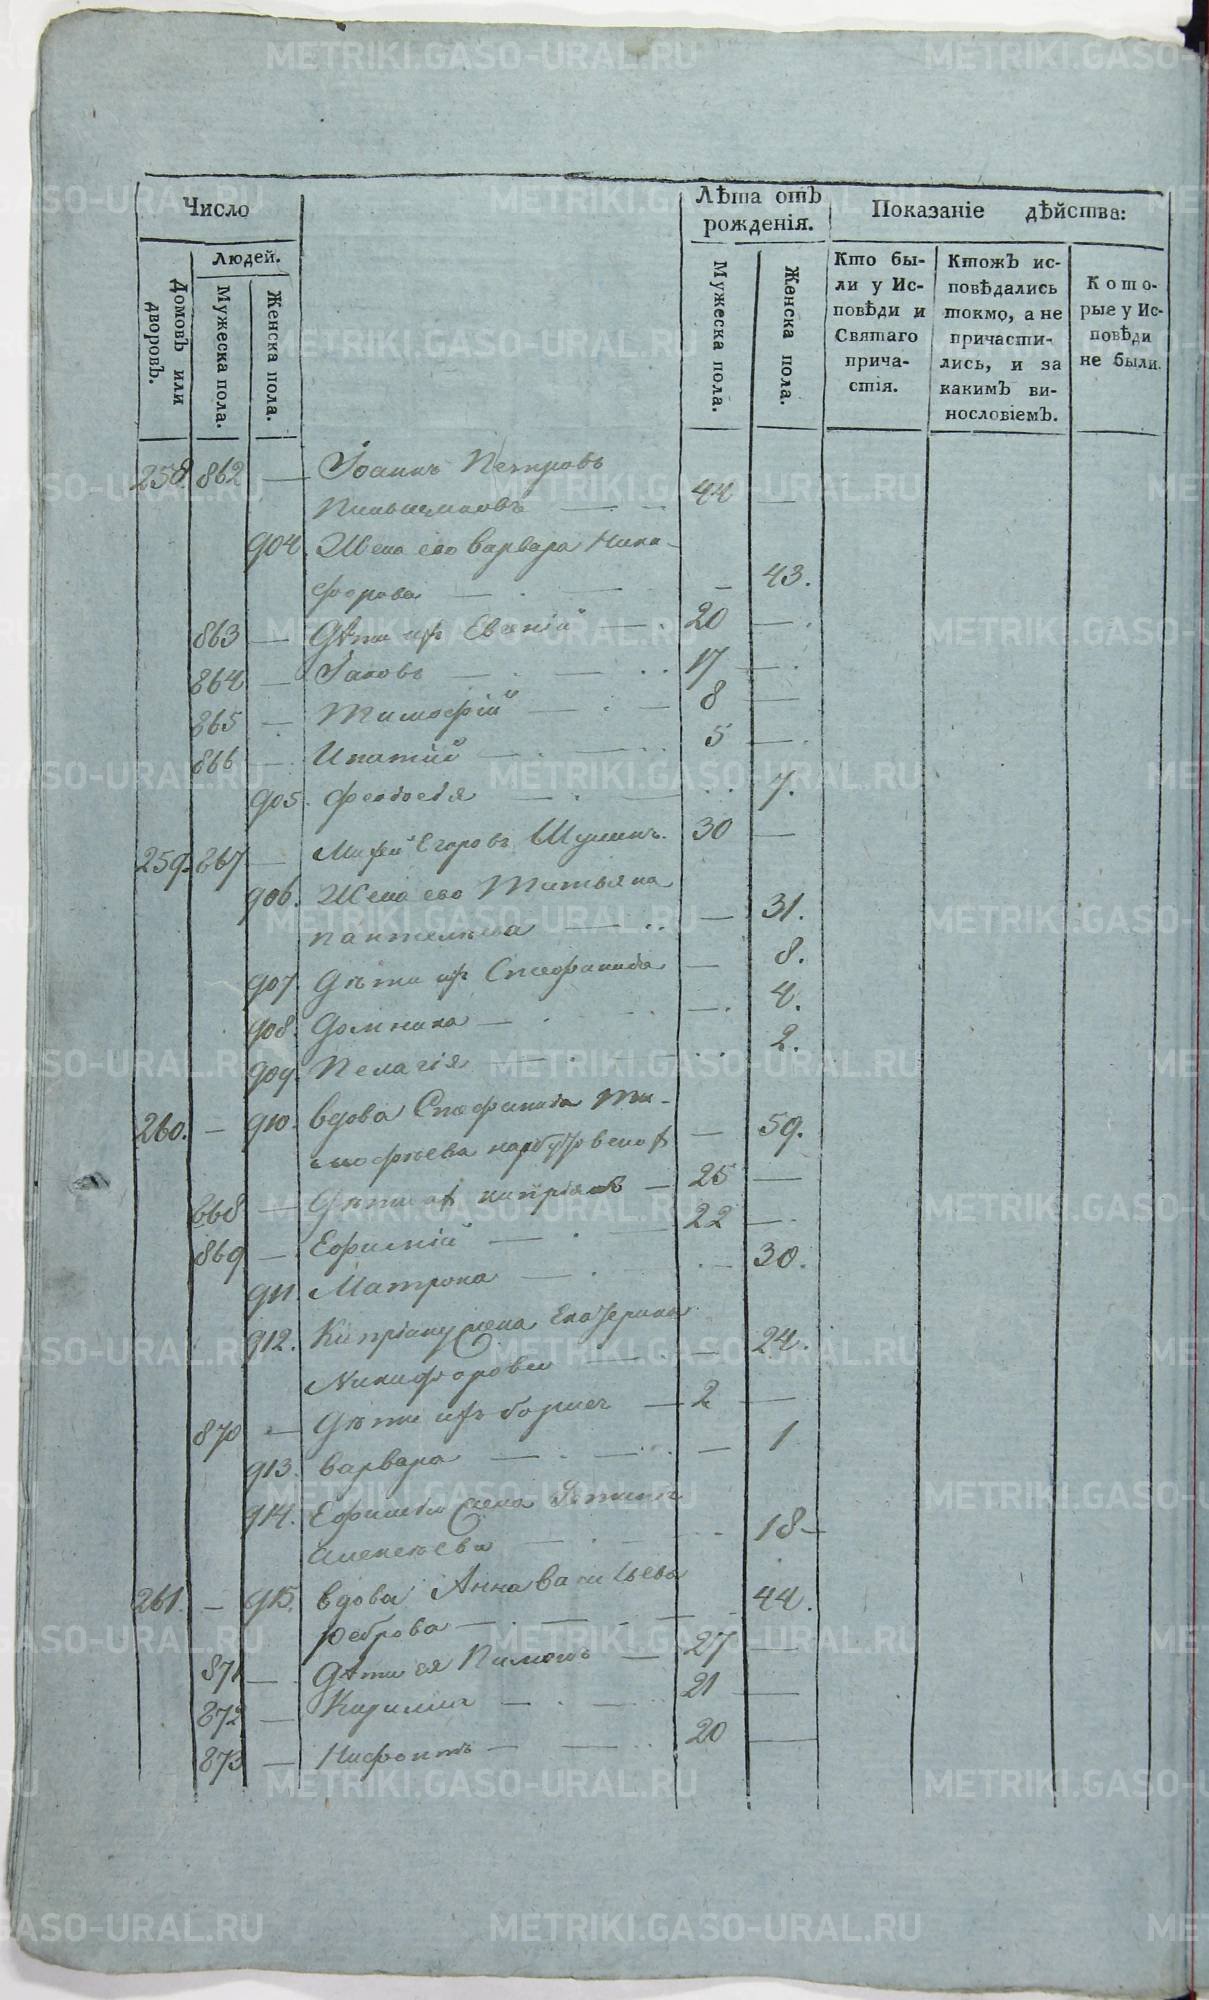 Число
Лѣта отъ
рожденія.
Показаніе дѣйства:
Людей.
Домовъ или
дворовъ.
Мужеска пола.
Женска пола.
Мужеска пола.
Женска пола.
Кто бы-
ли у Ис-
повѣди и
Святаго
прича-
стія.
Ктожъ ис-
повѣдались
токмо, а не
причасти-
лись, и за
какимъ ви-
нословіемъ.
Кото-
рые у Ис-
повѣди
не были.
258. 862 — Іоаннъ Петровъ
44 —
904. Жена его Варвара Ники-
форова — 43.
863 — Дѣти ихъ 20 —
864 — Іаковъ — 17 —
865 — Тимофій — 8 —
866 — Ипатій — 5 —
905. Феодосія — 7.
259. 867 — Егоровъ 30 —
906. Жена его Татьяна
Пантелѣева — 31.
907. Дѣти ихъ Стефанида — 8.
908. Домника — 4.
909. Пелагія — 2.
260. — 910. Вдова Стефанида Ти-
мофѣева — 59.
868 — Дѣти Кипріанъ — 25 —
869 — Ефимій — 22 —
911. Матрона — 30.
912. Кипріану жена Екатерина
Никифорова — 24.
870 — Дѣти ихъ Борисъ — 2 —
913. Варвара — 1
914. жена
Алексѣева — 18 —
261. — 915. Вдова Анна Васильева
Реброва — 44.
871 — Дѣти ея — 27 —
872 — Кириллъ — 21 —
873 — Нифонтъ — 20 —
METRIKI.GASO-URAL.RU